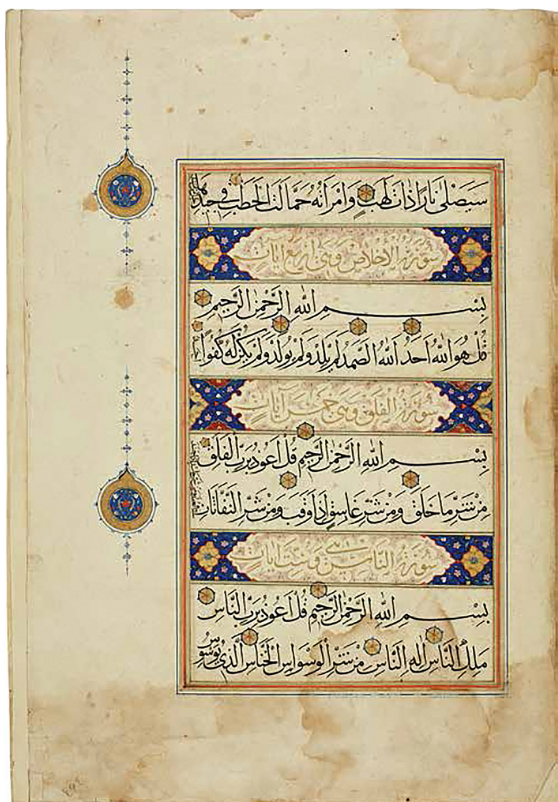 سَيَصْلَى نَارًا ذَاتَ لَهَبٍ وَامْرَأَتُهُ حَمَّالَتَ الْحَطَبِ فِي جِيدِهَا
سورة الاخلاص وهي اربع ايات
بِسْمِ اللَّهِ الرَّحْمَنِ الرَّحِيمِ
قُلْ هُوَ اللَّهُ أَحَدٌ اللَّهُ الصَّمَدُ لَمْ يَلِدْ وَلَمْ يُولَدْ وَلَمْ يَكُنْ لَهُ كُفُوًا
سورة الفلق وهي خمس ايات
بِسْمِ اللَّهِ الرَّحْمَنِ الرَّحِيمِ قُلْ أَعُوذُ بِرَبِّ الْفَلَقِ
مِنْ شَرِّ مَا خَلَقَ وَمِنْ شَرِّ غَاسِقٍ إِذَا وَقَبَ وَمِنْ شَرِّ النَّفَّاثَاتِ
سورة الناس وهي ست ايات
بِسْمِ اللَّهِ الرَّحْمَنِ الرَّحِيمِ قُلْ أَعُوذُ بِرَبِّ النَّاسِ
مَلِكِ النَّاسِ إِلَهِ النَّاسِ مِنْ شَرِّ الْوَسْوَاسِ الْخَنَّاسِ الَّذِي يُوَسْوِسُ